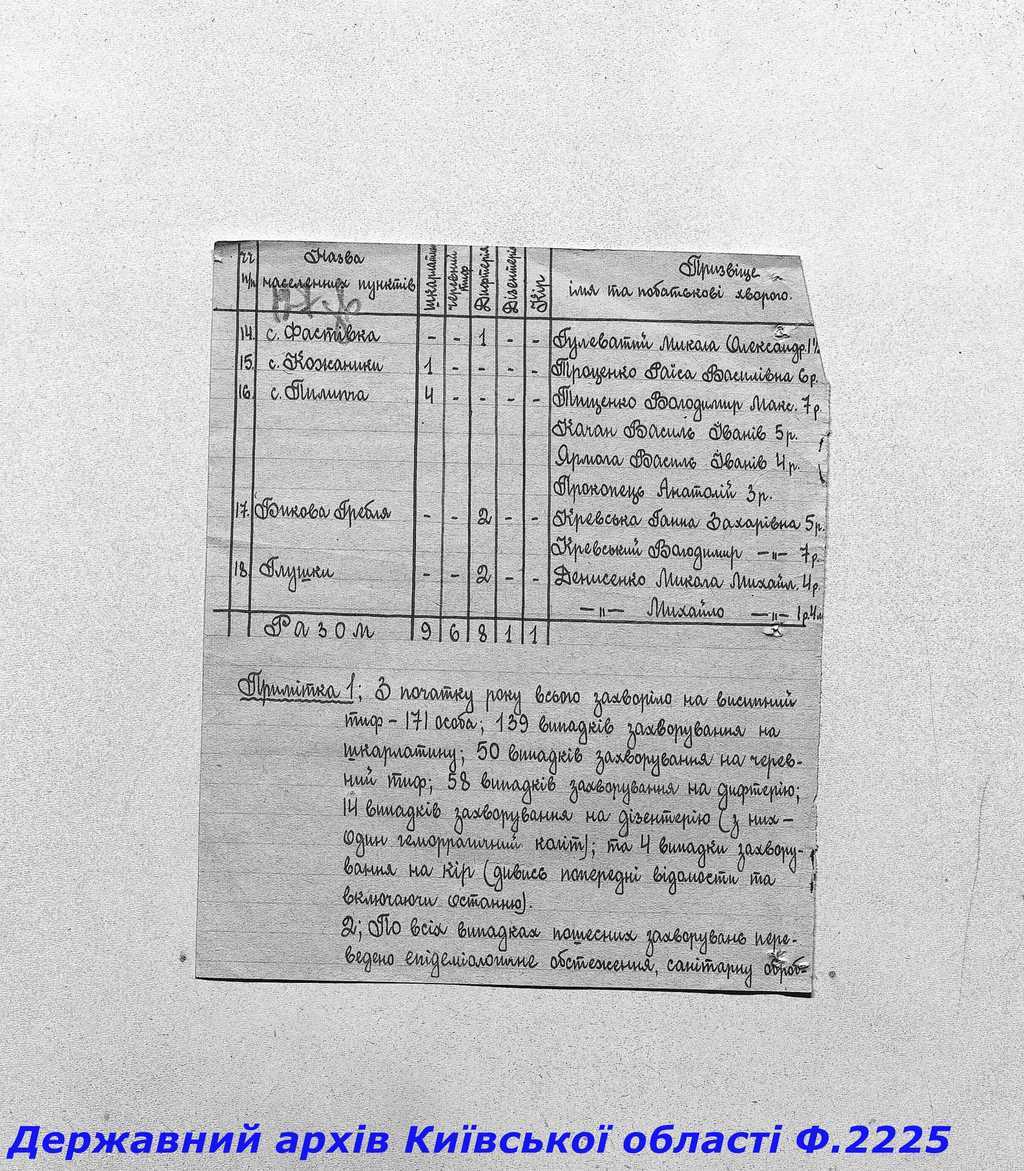 чч п/п Назва населенних пунктів шкарлатин черевний тиф Дифтерія Дізентері Кір Призвіще імя та побатькові хворого.
14. с. Фастівка - - 1 - - Гулеватий Микола Олександр.
15. с. Кожаники 1 - - - - Троценко Раїса Василівна 6 р.
16. с. Пилипча 4 - - - - Тищенко Володимир Макс. 7 р.
Качан Василь Іванів 5 р.
Ярмола Василь Іванів 4 р.
Прокопець Анатолій 3 р.
17. Бикова Гребля - - 2 - - Кревська Ганна Захарівна 5 р.
Кревський Володимир —„— 7 р.
18. Глушки - - 2 - - Денисенко Микола Михайл. 4 р.
—„— Михайло —„— 1 р. 4 м
Разом 9 6 8 1 1
Примітка 1; З початку року всього захворіло на висипний
тиф - 171 особа; 139 випадків захворування на
шкарлатину; 50 випадків захворування на черев-
ний тиф; 58 випадків захворування на дифтерію;
14 випадків захворування на дізентерію (з них -
один геморрагичний коліт); та 4 випадки захвору-
вання на кір (дивись попередні відомости та
включаючи останню).
2; По всіх випадках пошесних захворувань пере-
ведено епідеміологичне обстеження, санітарну оброб=
Державний архів Київської області Ф.2225